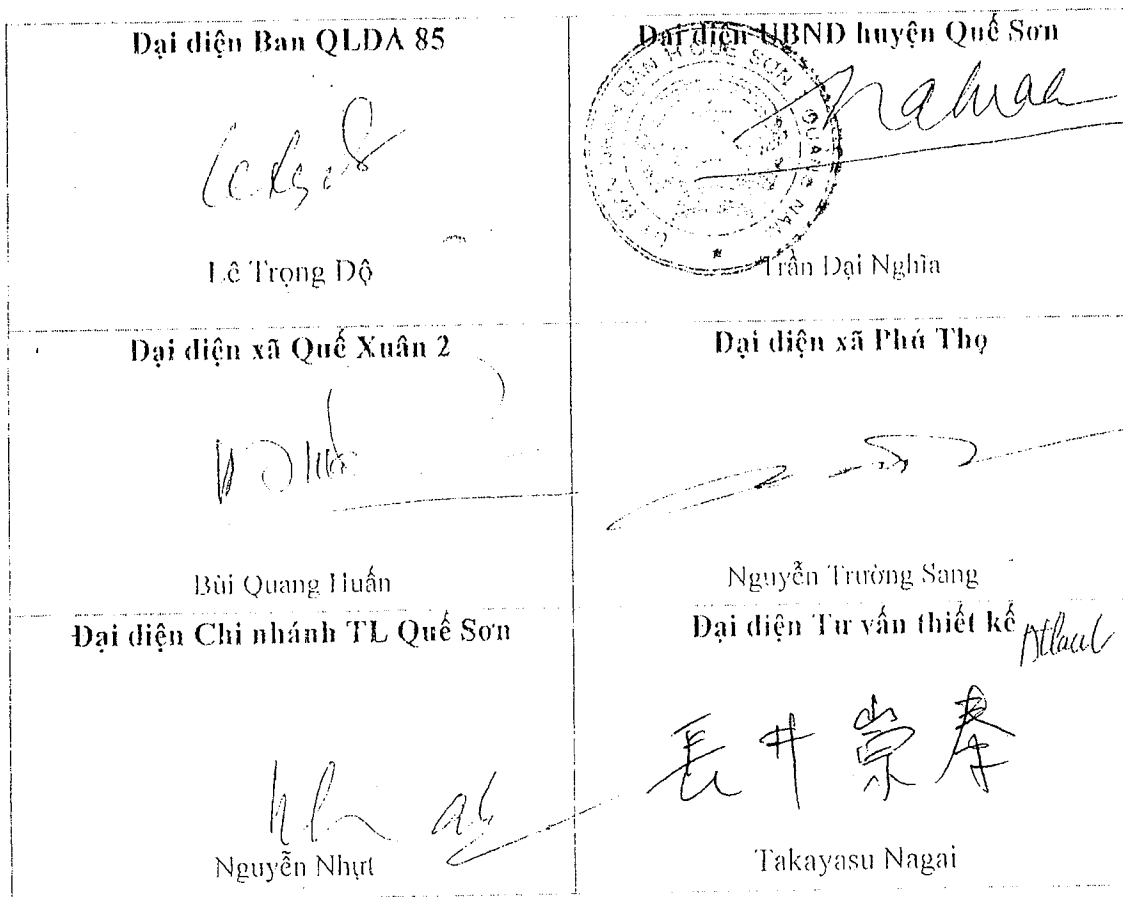 Đại diện Ban QLDA 85
Đại diện UBND huyện Quế Sơn
QUẾ SƠN
QUẢNG NAM
Lê Trọng Độ
Trần Đại Nghĩa
Đại diện xã Quế Xuân 2
Đại diện xã Phú Thọ
Bùi Quang Huấn
Nguyễn Trường Sang
Đại diện Chi nhánh TL Quế Sơn
Đại diện Tư vấn thiết kế
長井崇泰
Nguyễn Nhựt
Takayasu Nagai